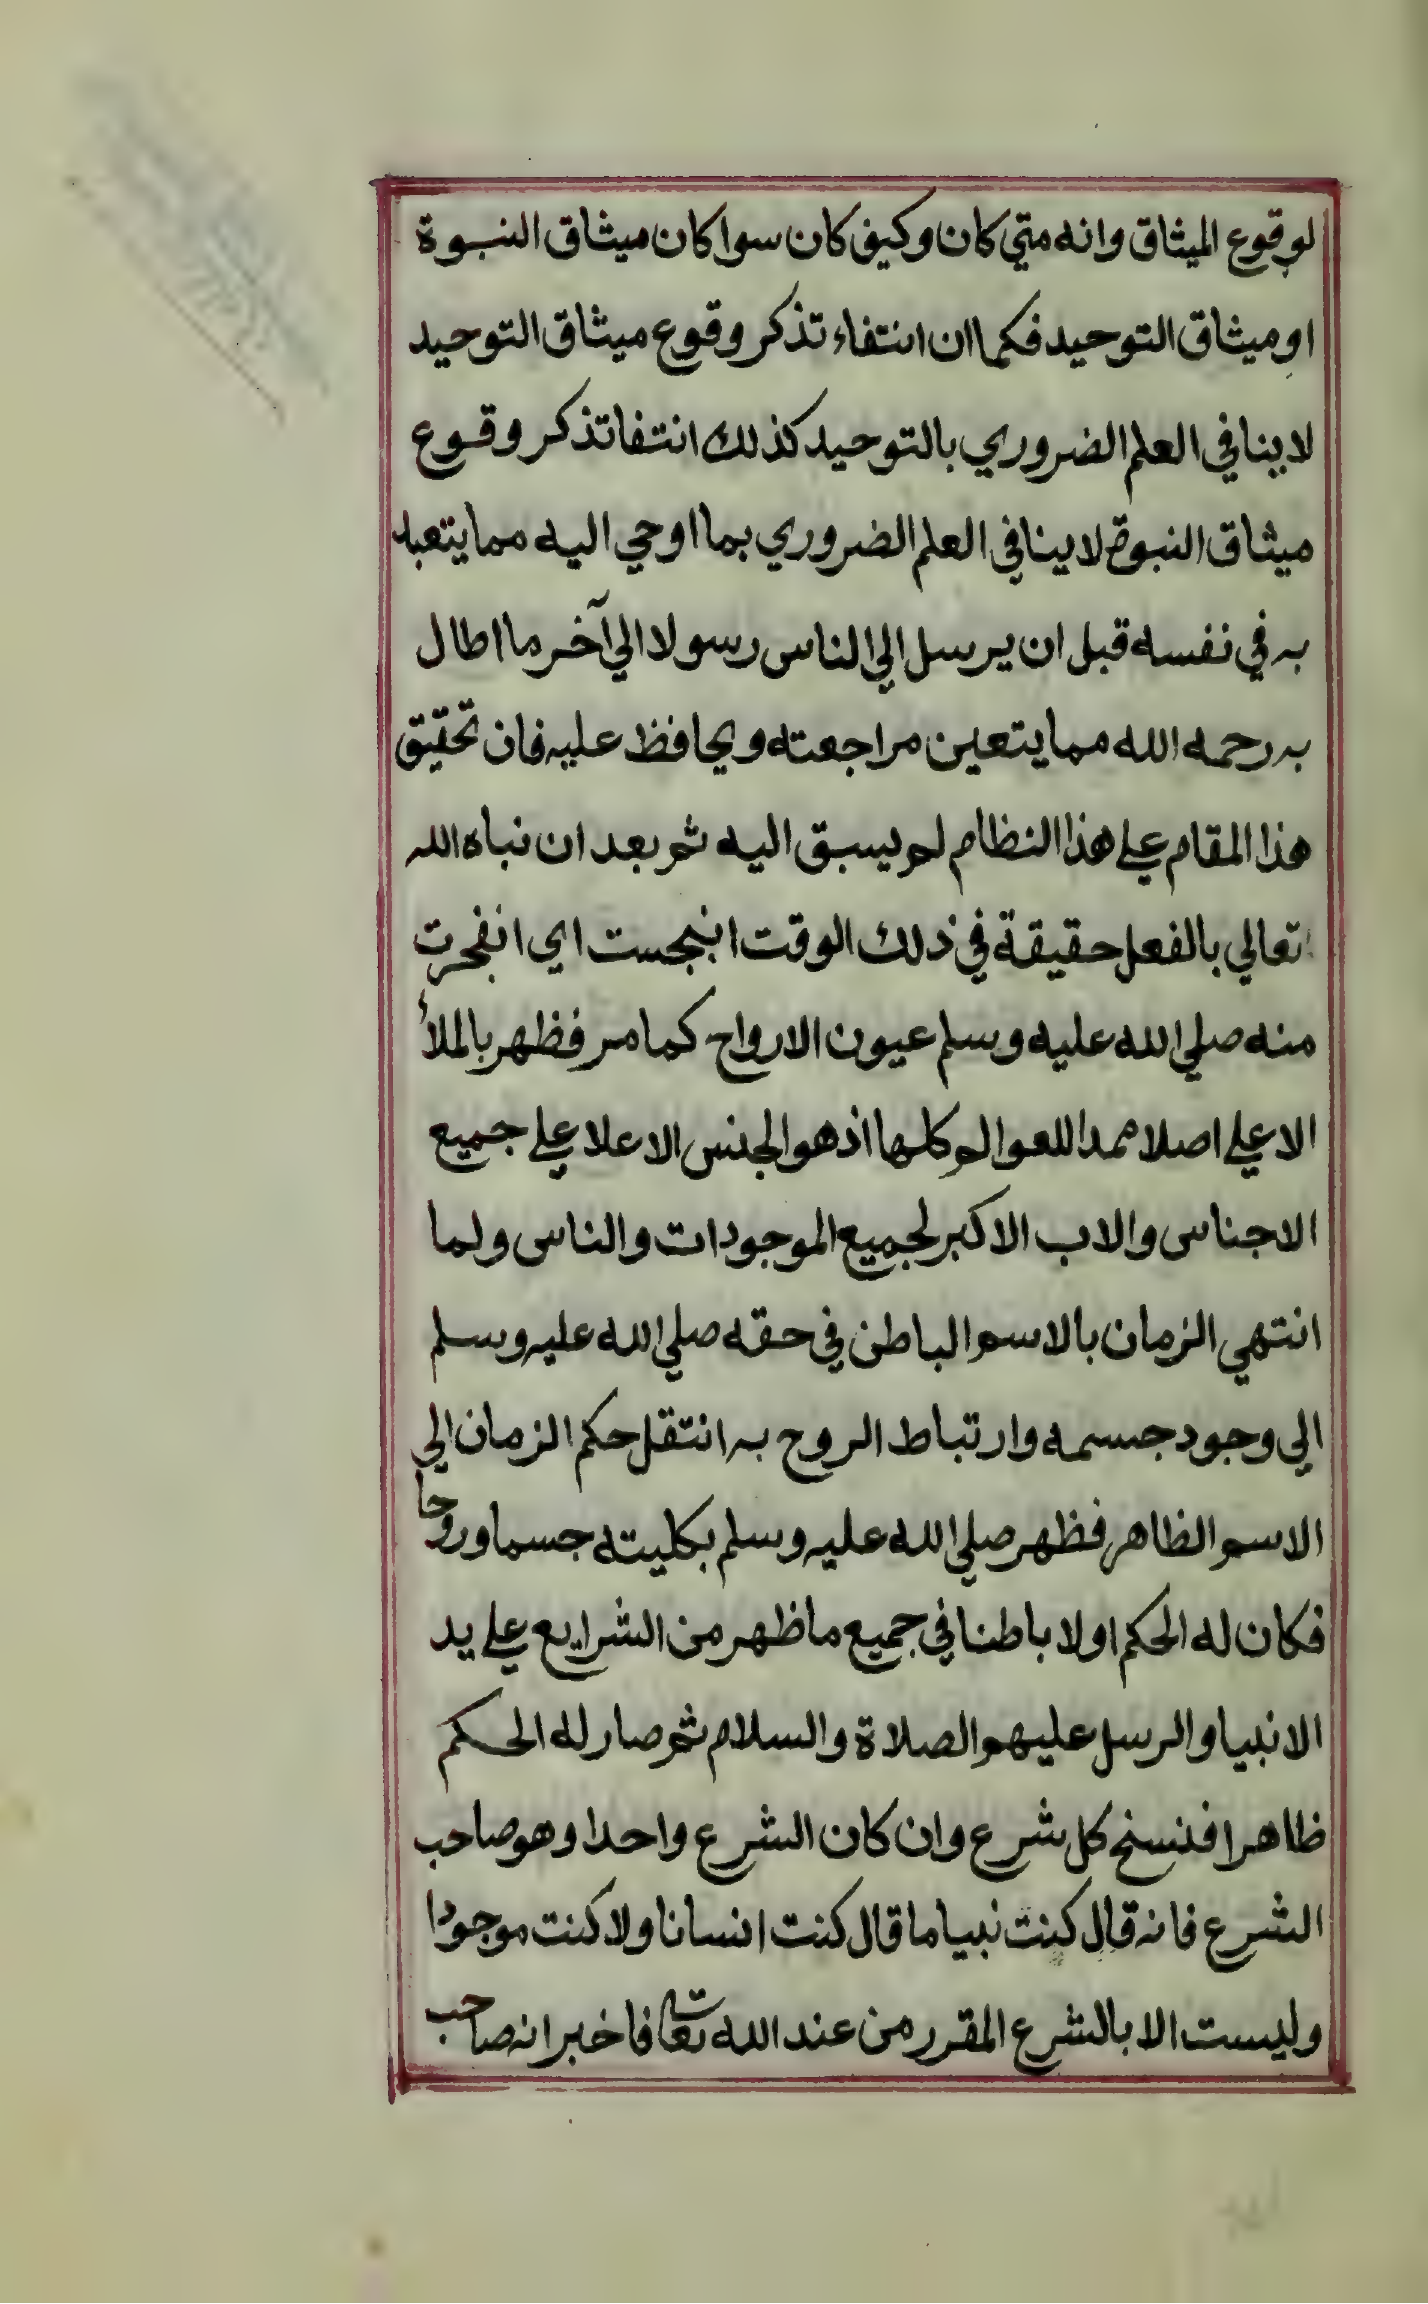 لوقوع الميثاق وانه متي كان وكيف كان سوا كان ميثاق النبوة
او ميثاق التوحيد فكما ان انتفاء تذكر وقوع ميثاق التوحيد
لا ينافي العلم الضروري بالتوحيد كذلك انتفا تذكر وقوع
ميثاق النبوة لا ينافي العلم الضروري بما اوحي اليه مما يتعبد
به في نفسه قبل ان يرسل الي الناس رسولا الي آخر ما اطال
به رحمه الله مما يتعين مراجعته ويحافظ عليه فان تحقيق
هذا المقام علي هذا النظام لم يسبق اليه ثم بعد ان نباه الله
تعالي بالفعل حقيقة في ذلك الوقت انبجست اي انفجرت
منه صلي الله عليه وسلم عيون الارواح كما مر فظهر بالملأ
الاعلي اصلا ممدا للعوالم كلها اذ هو الجنس الاعلا علي جميع
الاجناس والاب الاكبر لجميع الموجودات والناس ولما
انتهي الزمان بالاسم الباطن في حقه صلي الله عليه وسلم
الي وجود جسمه وارتباط الروح به انتقل حكم الزمان الي
الاسم الظاهر فظهر صلي الله عليه وسلم بكليته جسما وروحا
فكان له الحكم اولا باطنا في جميع ما ظهر من الشرايع علي يد
الانبيا والرسل عليهم الصلاة والسلام ثم صار له الحكم
ظاهرا فنسخ كل شرع وان كان الشرع واحدا وهو صاحب
الشرع فانه قال كنت نبيا ما قال كنت انسانا ولا كنت موجودا
وليست الا بالشرع المقرر من عند الله تعالي فاخبر انه صاحب